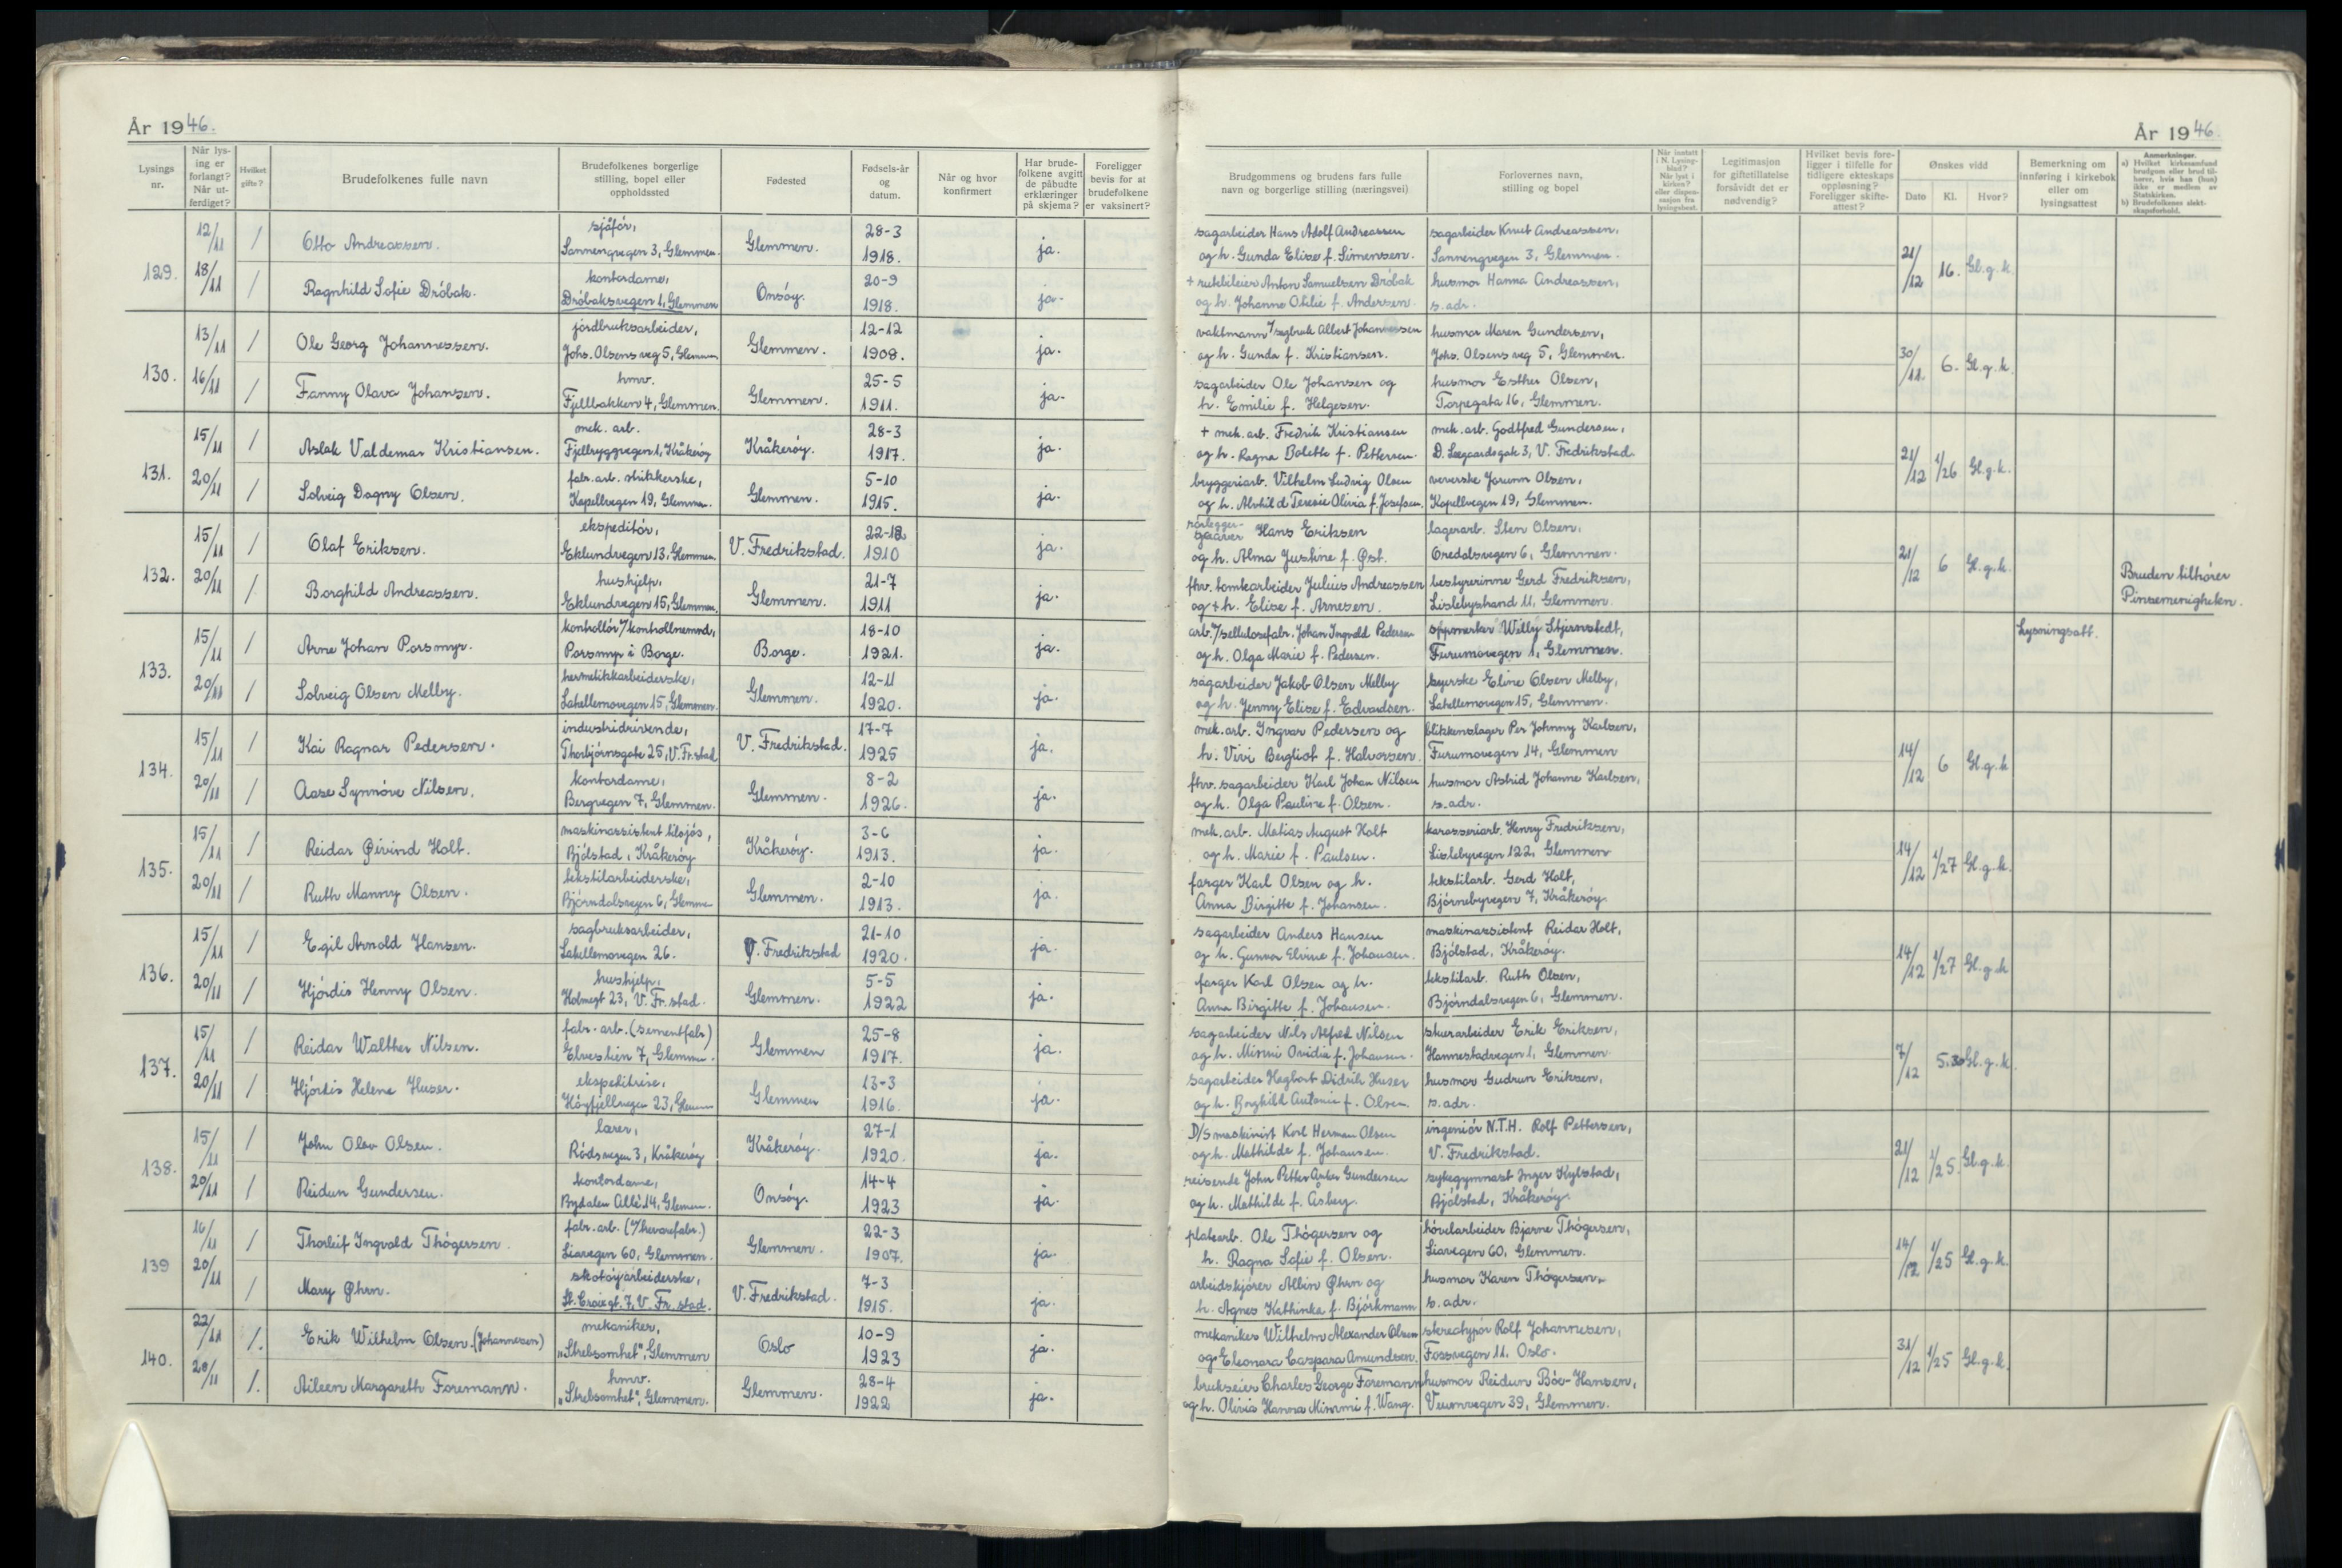 År 1946.
År 1946.
Lysings nr.
Når lysing er forlangt? Når utferdiget?
Hvilket gifte?
Brudefolkenes fulle navn
Brudefolkenes borgerlige stilling, bopel eller oppholdssted
Fødested
Fødsels-år og datum.
Når og hvor konfirmert
Har brudefolkene avgitt de påbudte erklæringer på skjema?
Foreligger bevis for at brudefolkene er vaksinert?
Brudgommens og brudens fars fulle navn og borgerlige stilling (næringsvei)
Forlovernes navn, stilling og bopel
Legitimasjon for giftetillatelse forsåvidt det er nødvendig?
Hvilket bevis foreligger i tilfelle for tidligere ekteskaps oppløsning? Foreligger skifteattest?
Ønskes vidd
Dato Kl. Hvor?
Bemerkning om innføring i kirkebok eller om lysingsattest
Anmerkninger.
a) Hvilket kirkesamfund brudgom eller brud tilhører, hvis han (hun) ikke er medlem av Statskirken.
b) Brudefolkenes slektskapsforhold.
129. 12/11 / Otto Andreassen. sjåfør, Sannengvegen 3, Glemmen. Glemmen. 28-3 1918. ja. sagarbeider Hans Adolf Andreassen og h. Gunda Elise f. Simensen. sagarbeider Knut Andreassen, Sannengvegen 3, Glemmen. 21/12 16. Gl.g.k.
18/11 / Ragnhild Sofie Dröbak. kontordame, Dröbaksvegen 1, Glemmen Onsöy. 20-9 1918. ja. + Anton Samuelsen Dröbak og h. Johanne Otilie f. Andersen. husmor Hanna Andreassen, s.adr.
130. 13/11 / Ole Georg Johannessen. jordbruksarbeider, Johs. Olsens veg 5, Glemmen Glemmen. 12-12 1908. ja. vaktmann Albert Johannessen og h. Gunda f. Kristiansen. husmor Maren Gundersen, Johs. Olsens veg 5, Glemmen. 30/11. 6. Gl.g.k.
16/11 / Fanny Olava Johansen. hmv. Fjellbakken 4, Glemmen. Glemmen. 25-5 1911. ja. sagarbeider Ole Johansen og h. Emilie f. Helgesen. husmor Esther Olsen, Torpegata 16, Glemmen.
131. 15/11 / Aslak Valdemar Kristiansen. mek. arb. Fjellryggvegen 1, Kråkeröy Kråkeröy. 28-3 1917. ja. + mek. arb. Fredrik Kristiansen og h. Ragna Bolette f. Pettersen. mek. arb. Godtfred Gundersen, V. Fredrikstad. 21/12 1/26 Gl.g.k.
20/11 / Solveig Dagny Olsen. fabr. arb. strikkerske, Kapellvegen 19, Glemmen. Glemmen. 5-10 1915. ja. bryggeriarb. Vilhelm Ludvig Olsen og h. Alvhild Teresie Olivia f. Josefsen. veverske Jorunn Olsen, Kapellvegen 19, Glemmen.
132. 15/11 / Olaf Eriksen. ekspeditör, Eklundvegen 13, Glemmen. V. Fredrikstad. 22-12 1910 ja. Hans Eriksen og h. Alma Justine f. Øst. lagerarb. Sten Olsen, Oredalsvegen 6, Glemmen. 21/12 6 Gl.g.k.
20/11 / Borghild Andreassen. hushjelp, Eklundvegen 15, Glemmen. Glemmen. 21-7 1911 ja. fhv. tomtearbeider Julius Andreassen og + h. Elise f. Arnesen. bestyrerinne Gerd Fredriksen, Lislebystrand 11, Glemmen. Bruden tilhörer Pinsemenigheten.
133. 15/11 / Arne Johan Porsmyr. kontrollör v/ kontrollnemnd, Porsmyr i Borge. Borge. 18-10 1921. ja. arb. v/ sellulosefabr. Johan Ingvald Pedersen og h. Olga Marie f. Pedersen. oppmerker Willy Stjernstedt, Furumovegen 1, Glemmen. Lysningsatt.
20/11 / Solveig Olsen Melby. hermetikkarbeiderske, Lahellemovegen 15, Glemmen. Glemmen. 12-11 1920. ja. sagarbeider Jakob Olsen Melby og h. Jenny Elise f. Edvardsen. syerske Eline Olsen Melby, Lahellemovegen 15, Glemmen.
134. 15/11 / Kai Ragnar Pedersen. industridrivende, Thorbjörnsgate 25, V. Fr.stad V. Fredrikstad. 17-7 1925 ja. mek. arb. Ingvar Pedersen og h. Vivi Bergliot f. Halvorsen. blikkenslager Per Johnny Karlsen, Furumovegen 14, Glemmen 14/12 6 Gl.g.k
20/11 / Aase Synnöve Nilsen. kontordame, Bergvegen 7, Glemmen. Glemmen. 8-2 1926. ja. fhv. sagarbeider Karl Johan Nilsen og h. Olga Pauline f. Olsen. husmor Astrid Johanne Karlsen, s.adr.
135. 15/11 / Reidar Øivind Holt. maskinassistent tilsjös, Bjölstad, Kråkeröy Kråkeröy. 3-6 1913. ja. mek. arb. Matias August Holt og h. Marie f. Paulsen. karosseriarb. Henry Fredriksen, Lislebyvegen 122, Glemmen 14/12 1/27 Gl.g.k.
20/11 / Ruth Manny Olsen. tekstilarbeiderske, Björndalsvegen 6, Glemmen Glemmen. 2-10 1913. ja. farger Karl Olsen og h. Anna Birgitte f. Johansen. tekstilarb. Gerd Holt, Björnebyvegen 7, Kråkeröy.
136. 15/11 / Egil Arnold Hansen. sagbruksarbeider, Lahellemovegen 26. V. Fredrikstad 21-10 1920. ja. sagarbeider Anders Hansen og h. Gunvor Elvine f. Johansen. maskinassistent Reidar Holt, Bjölstad, Kråkeröy. 14/12 1/27 Gl.g.k
20/11 / Hjördis Henny Olsen. hushjelp, Holmegt 23, V. Fr. stad. Glemmen. 5-5 1922 ja. farger Karl Olsen og h. Anna Birgitte f. Johansen. tekstilarb. Ruth Olsen, Björndalsvegen 6, Glemmen.
137. 15/11 / Reidar Walther Nilsen. fabr. arb. (sementfabr) Elvestien 7, Glemmen. Glemmen 25-8 1917. ja. sagarbeider Nils Alfred Nilsen og h. Minni Ovidia f. Johansen. stuerarbeider Erik Eriksen, Hannestadvegen 1, Glemmen. 7/12 5.30 Gl.g.k.
20/11 / Hjördis Helene Huser. ekspeditrise, Högfjellvegen 23, Glemmen Glemmen 13-3 1916. ja. sagarbeider Hagbart Didrik Huser og h. Borghild Antonie f. Olsen. husmor Gudrun Eriksen, s.adr.
138. 15/11 / John Olav Olsen. lærer, Rödsvegen 3, Kråkeröy Kråkeröy. 27-1 1920. ja. D/S maskinist Karl Herman Olsen og h. Mathilde f. Johansen. ingeniör N.T.H. Rolf Pettersen, V. Fredrikstad. 21/12 1/25. Gl.g.k.
20/11 / Reidun Gundersen. kontordame, Bydalen Allé 14, Glemmen. Onsöy. 14-4 1923 ja. reisende John Petter Gundersen og h. Mathilde f. Åsberg. sykegymnast Inger Kylstad, Bjölstad, Kråkeröy.
139 16/11 / Thorleif Ingvald Thögersen. fabr. arb. Liavegen 60, Glemmen. Glemmen. 22-3 1907. ja. platearb. Ole Thögersen og h. Ragna Sofie f. Olsen. hövelarbeider Bjarne Thögersen, Liavegen 60, Glemmen. 14/12 1/25 Gl.g.k.
20/11 / Mary Øhrn. skotöyarbeiderske, St. Croixgt. 7, V. Fr. stad. V. Fredrikstad. 7-3 1915. ja. arbeidskjörer Albin Øhrn og h. Agnes Kathinka f. Björkmann husmor Karen Thögersen. s.adr.
140. 22/11 /. Erik Wilhelm Olsen. (Johannesen) mekaniker, "Strebsomhet", Glemmen Oslo 10-9 1923 ja. mekaniker Wilhelm Alexander Olsen og Eleonora Caspara Amundsen. stereotypör Rolf Johannesen, Fossvegen 11, Oslo. 31/12 1/25 Gl.g.k.
20/11 /. Aileen Margareth Foremann. hmv. "Strebsomhet", Glemmen. Glemmen. 28-4 1922 ja. brukseier Charles George Foremann og h. Olivia Hanna Minimi f. Wang. husmor Reidun Böe-Hansen, Veumvegen 39, Glemmen.